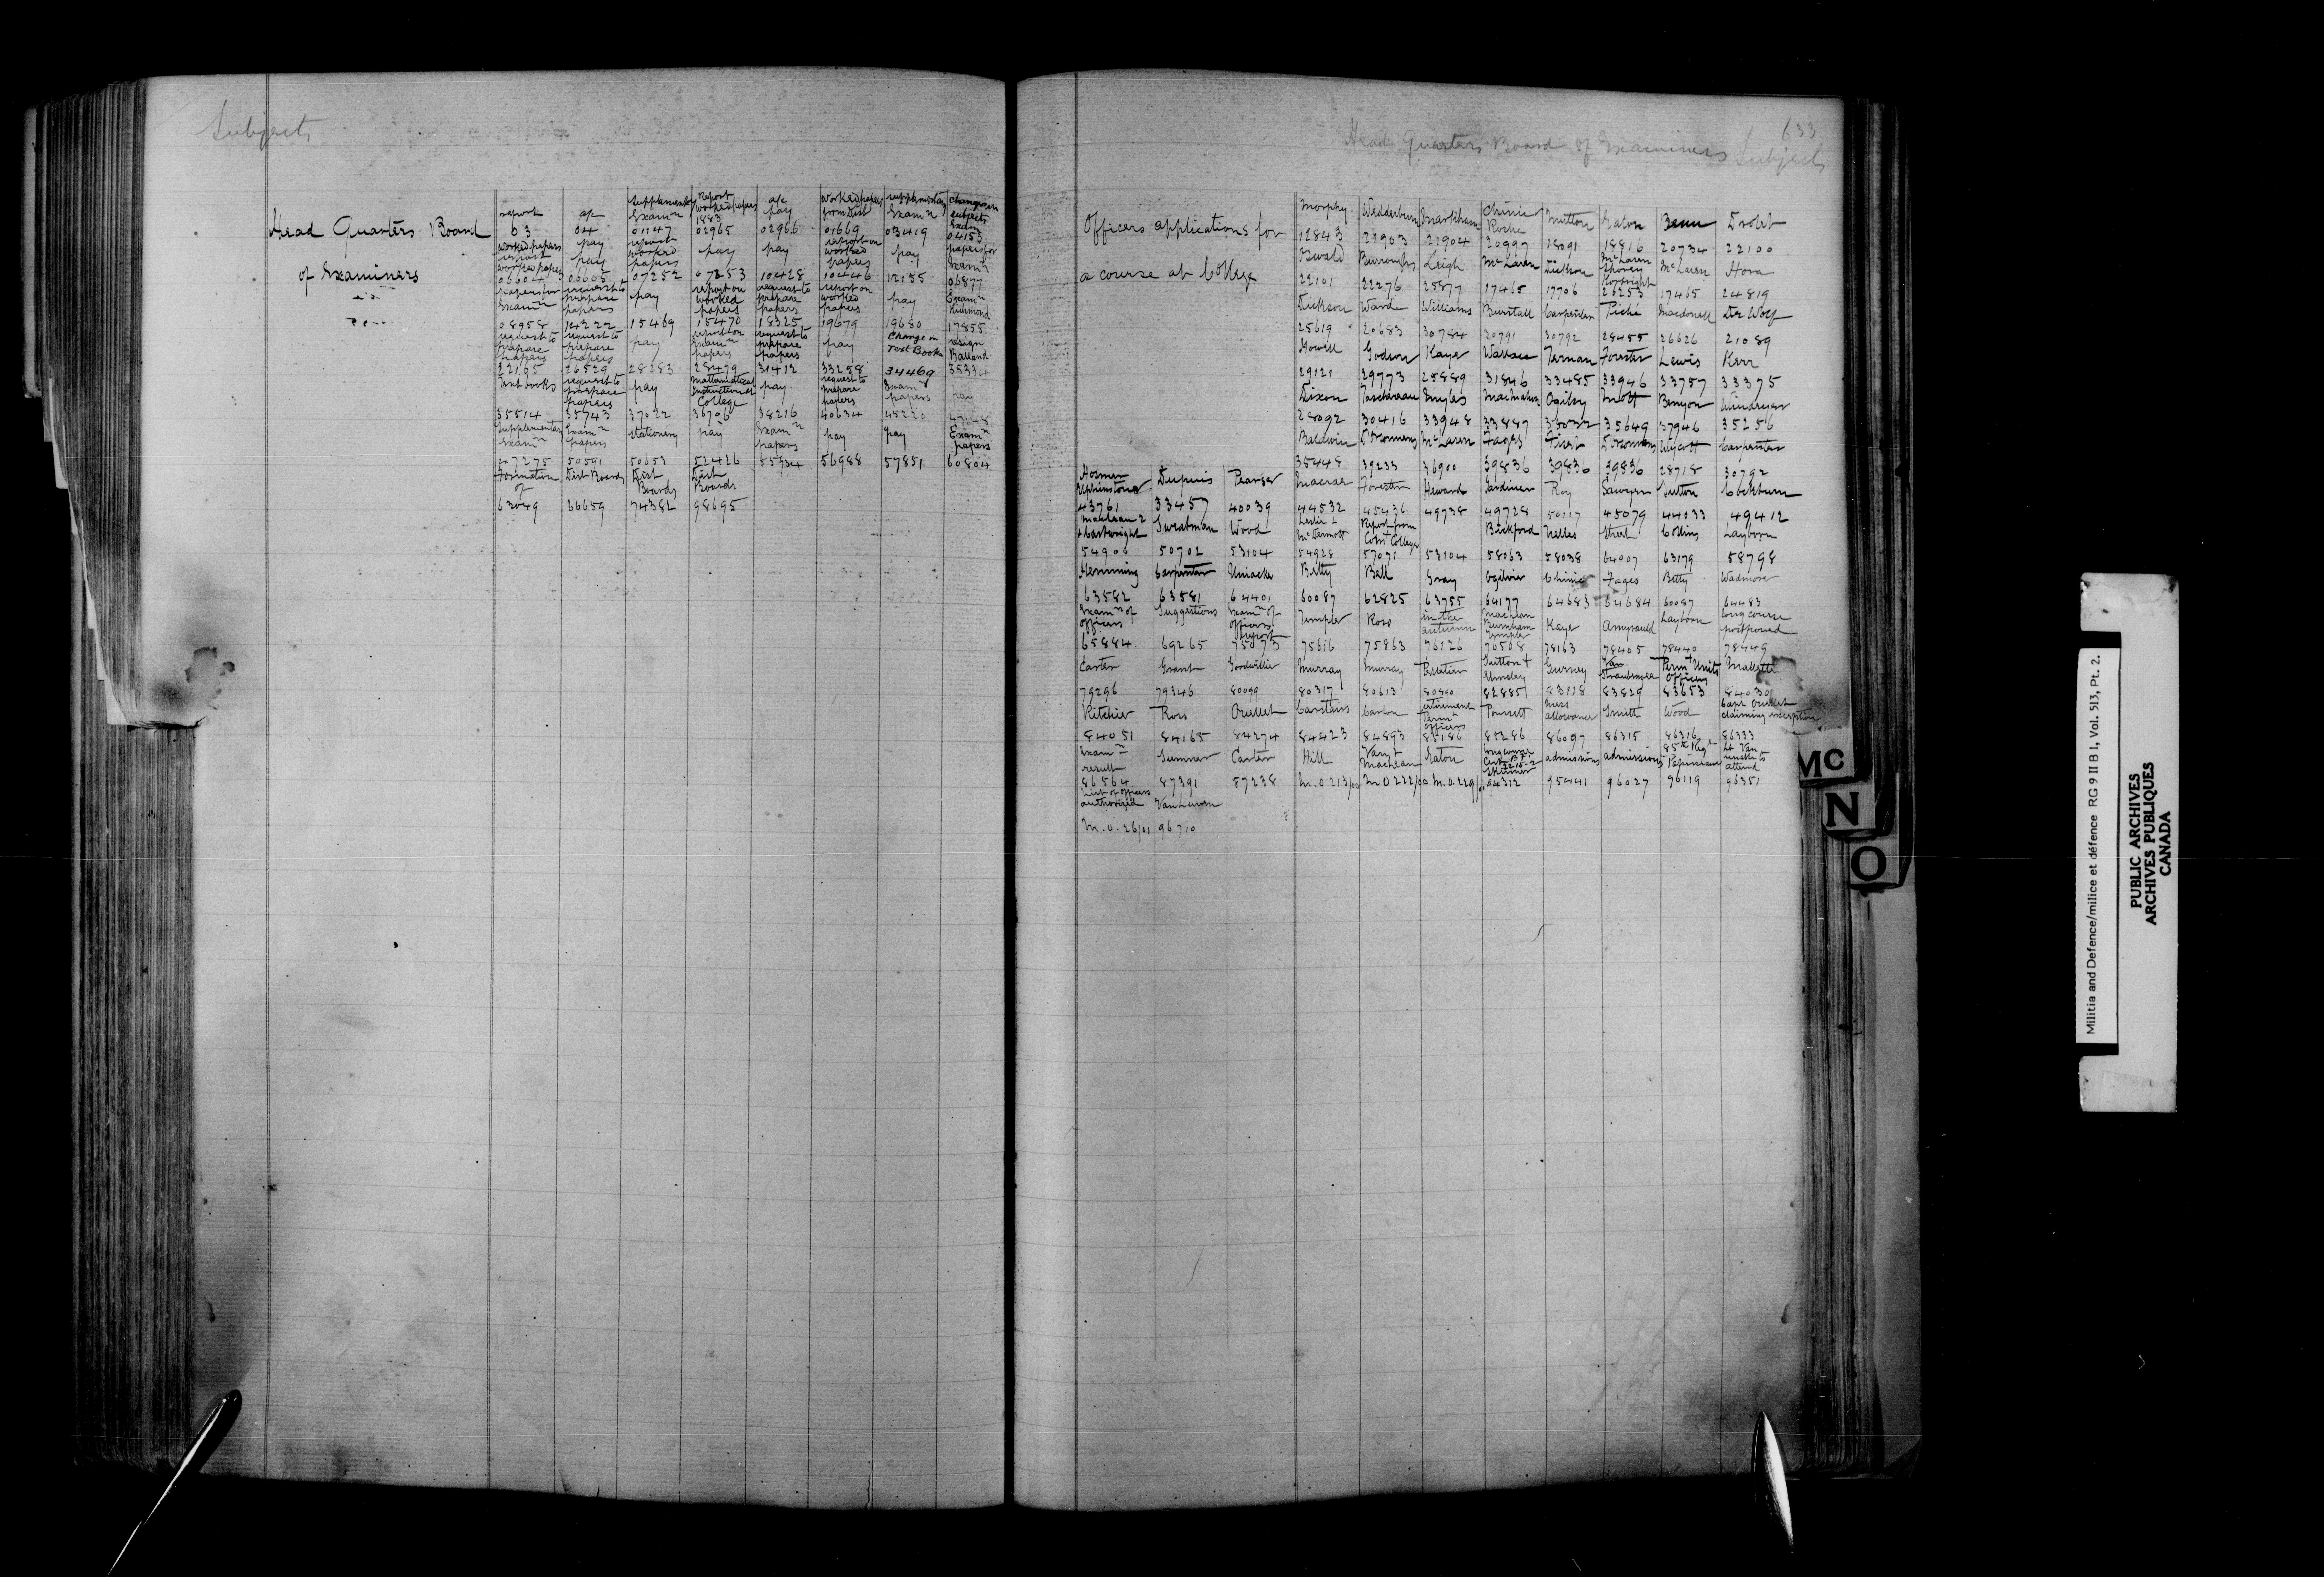 Subjects
Head Quarters Board
of Examiners
report a/c Supplementary Report a/c worked papers supplementary change in
Exam^n worked papers pay from Dist Exam^n subjects
1883 Exam
03 04 01147 02965 02966 01669 03419 04153
worked papers pay report pay pay report on pay papers for
report pay worked worked Exam^n
worked papers papers papers
06604 06605 07252 07253 10428 10446 12135 06877
papers for request to pay report on request to report on pay Exam^n
Exam^n prepare worked prepare worked Richmond
papers papers papers papers
08958 14222 15469 15470 18325 19679 19680 17855
request to request to pay report on request to pay Change in resign
prepare prepare Exam^n prepare Text Books Balland
papers papers papers papers
22165 26529 28283 28479 31412 33258 34469
Text books request to pay Mathematical pay request to Exam^n pay
prepare Instruction at prepare papers
papers College papers
35514 35743 37022 36706 38216 40634 45220
Supplementary Exam^n stationery pay Exam^n pay pay Exam^n
Exam^n papers papers papers
47275 50591 50653 52426 55934 56988 57851 60804
Formation Dist Boards Dist Dist
of Boards Boards
63049 66659 74382 98695
633
Head Quarters Board of Examiners Subjects
Officers applications for
a course at College
Morphy Wedderburn Markham Chinic Mutton Eaton Benn Drolet
Roche
12843 21903 21904 20997 18091 18816 20734 22100
Oswald Burroughs Leigh McLaren Dickson McLaren McLaren Hora
22101 22276 25877 17465 17706 26253 17465 24819
Dickson Ward Williams Burstall Carpenter Piché Macdonell De Wolf
25619 20683 30784 30791 30792 28455 26626 21089
Howell Godson Kaye Wallace Ternan Forester Lewis Kerr
29121 29773 25889 31846 33485 33946 33757 33375
Dixon Taschereau Ingles MacMahon Ogilvy Mott Benyon Windeyer
28092 30416 33948 33887 35649 37946 35256
Baldwin McLaren Fages Carpenter
35448 39233 36900 39836 39836 39836 28718 30792
Dupuis Macrae Forester Heward Gardiner Roy Sawyer Sutton Cockburn
43761 33457 40039 44532 45436 49738 49728 50117 45079 44033 49412
Maclean 2 Sweatman Wood Leslie & Report from Bickford Nelles Street Collins Layborn
& Cartwright McDermott Com^t College
54906 50702 53104 54928 57071 53104 58063 58038 64007 63179 58798
Hemming Carpenter Uniacke Betty Bell Gray Ogilvie Chinic Fages Betty Wadmore
63582 63581 64401 60087 62825 63755 64177 64683 64684 60087 64483
Exam^n of Suggestions Exam^n of Templer Ross in the Maclean Kaye Amyrauld Layborn long course
officers officers autumn Burnham postponed
report Templer
65884 69265 75073 75616 75863 76126 76508 78163 78405 78440 78449
Carter Grant Goodwillie Murray Murray Pelletier Sutton & Gurney Van Perm^t Units Mallette
Elmsley Straubenzee Officers
79296 79346 80099 80317 80613 80890 82885 83118 83829 83653 84030
Ritchie Ross Ouellet Carstairs Carlon retirement Poussett mess Smith Wood Capt Ouellet
Perm^t officers allowance claiming exception
84051 84165 84274 84423 84893 85186 85286 86097 86315 86316 86333
Exam^n Sumner Carter Hill Van & Eaton long course admissions admissions 85th Reg^t Lt Van
result Maclean Papineau unable to
Skinner attend
86564 87391 87238 M.O.213/00 M.O 222/00 M.O.229/00 94312 95441 96027 96119 96351
list of officers VanLuven
authorized
M.O. 26/01 96710
MC
N
O
Militia and Defence/milice et défence RG 9 II B 1, Vol. 513, Pt. 2.
PUBLIC ARCHIVES
ARCHIVES PUBLIQUES
CANADA